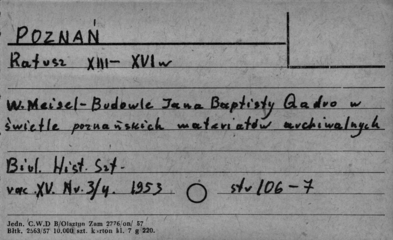 POZNAŃ
Ratusz XIII – XVI w
W. Meisel – Budowle Jana Baptisty Qadro w
świetle poznańskich materiałów archiwalnych
Biul. Hist. Szt.
roc XV. Nr. 3/4. 1953 str 106 – 7
Jedn. C.W.D B/Olsztyn Zam 2776/an/ 57
Bltk. 2563/57 10.000 szt. karton kl. 7 g 220.